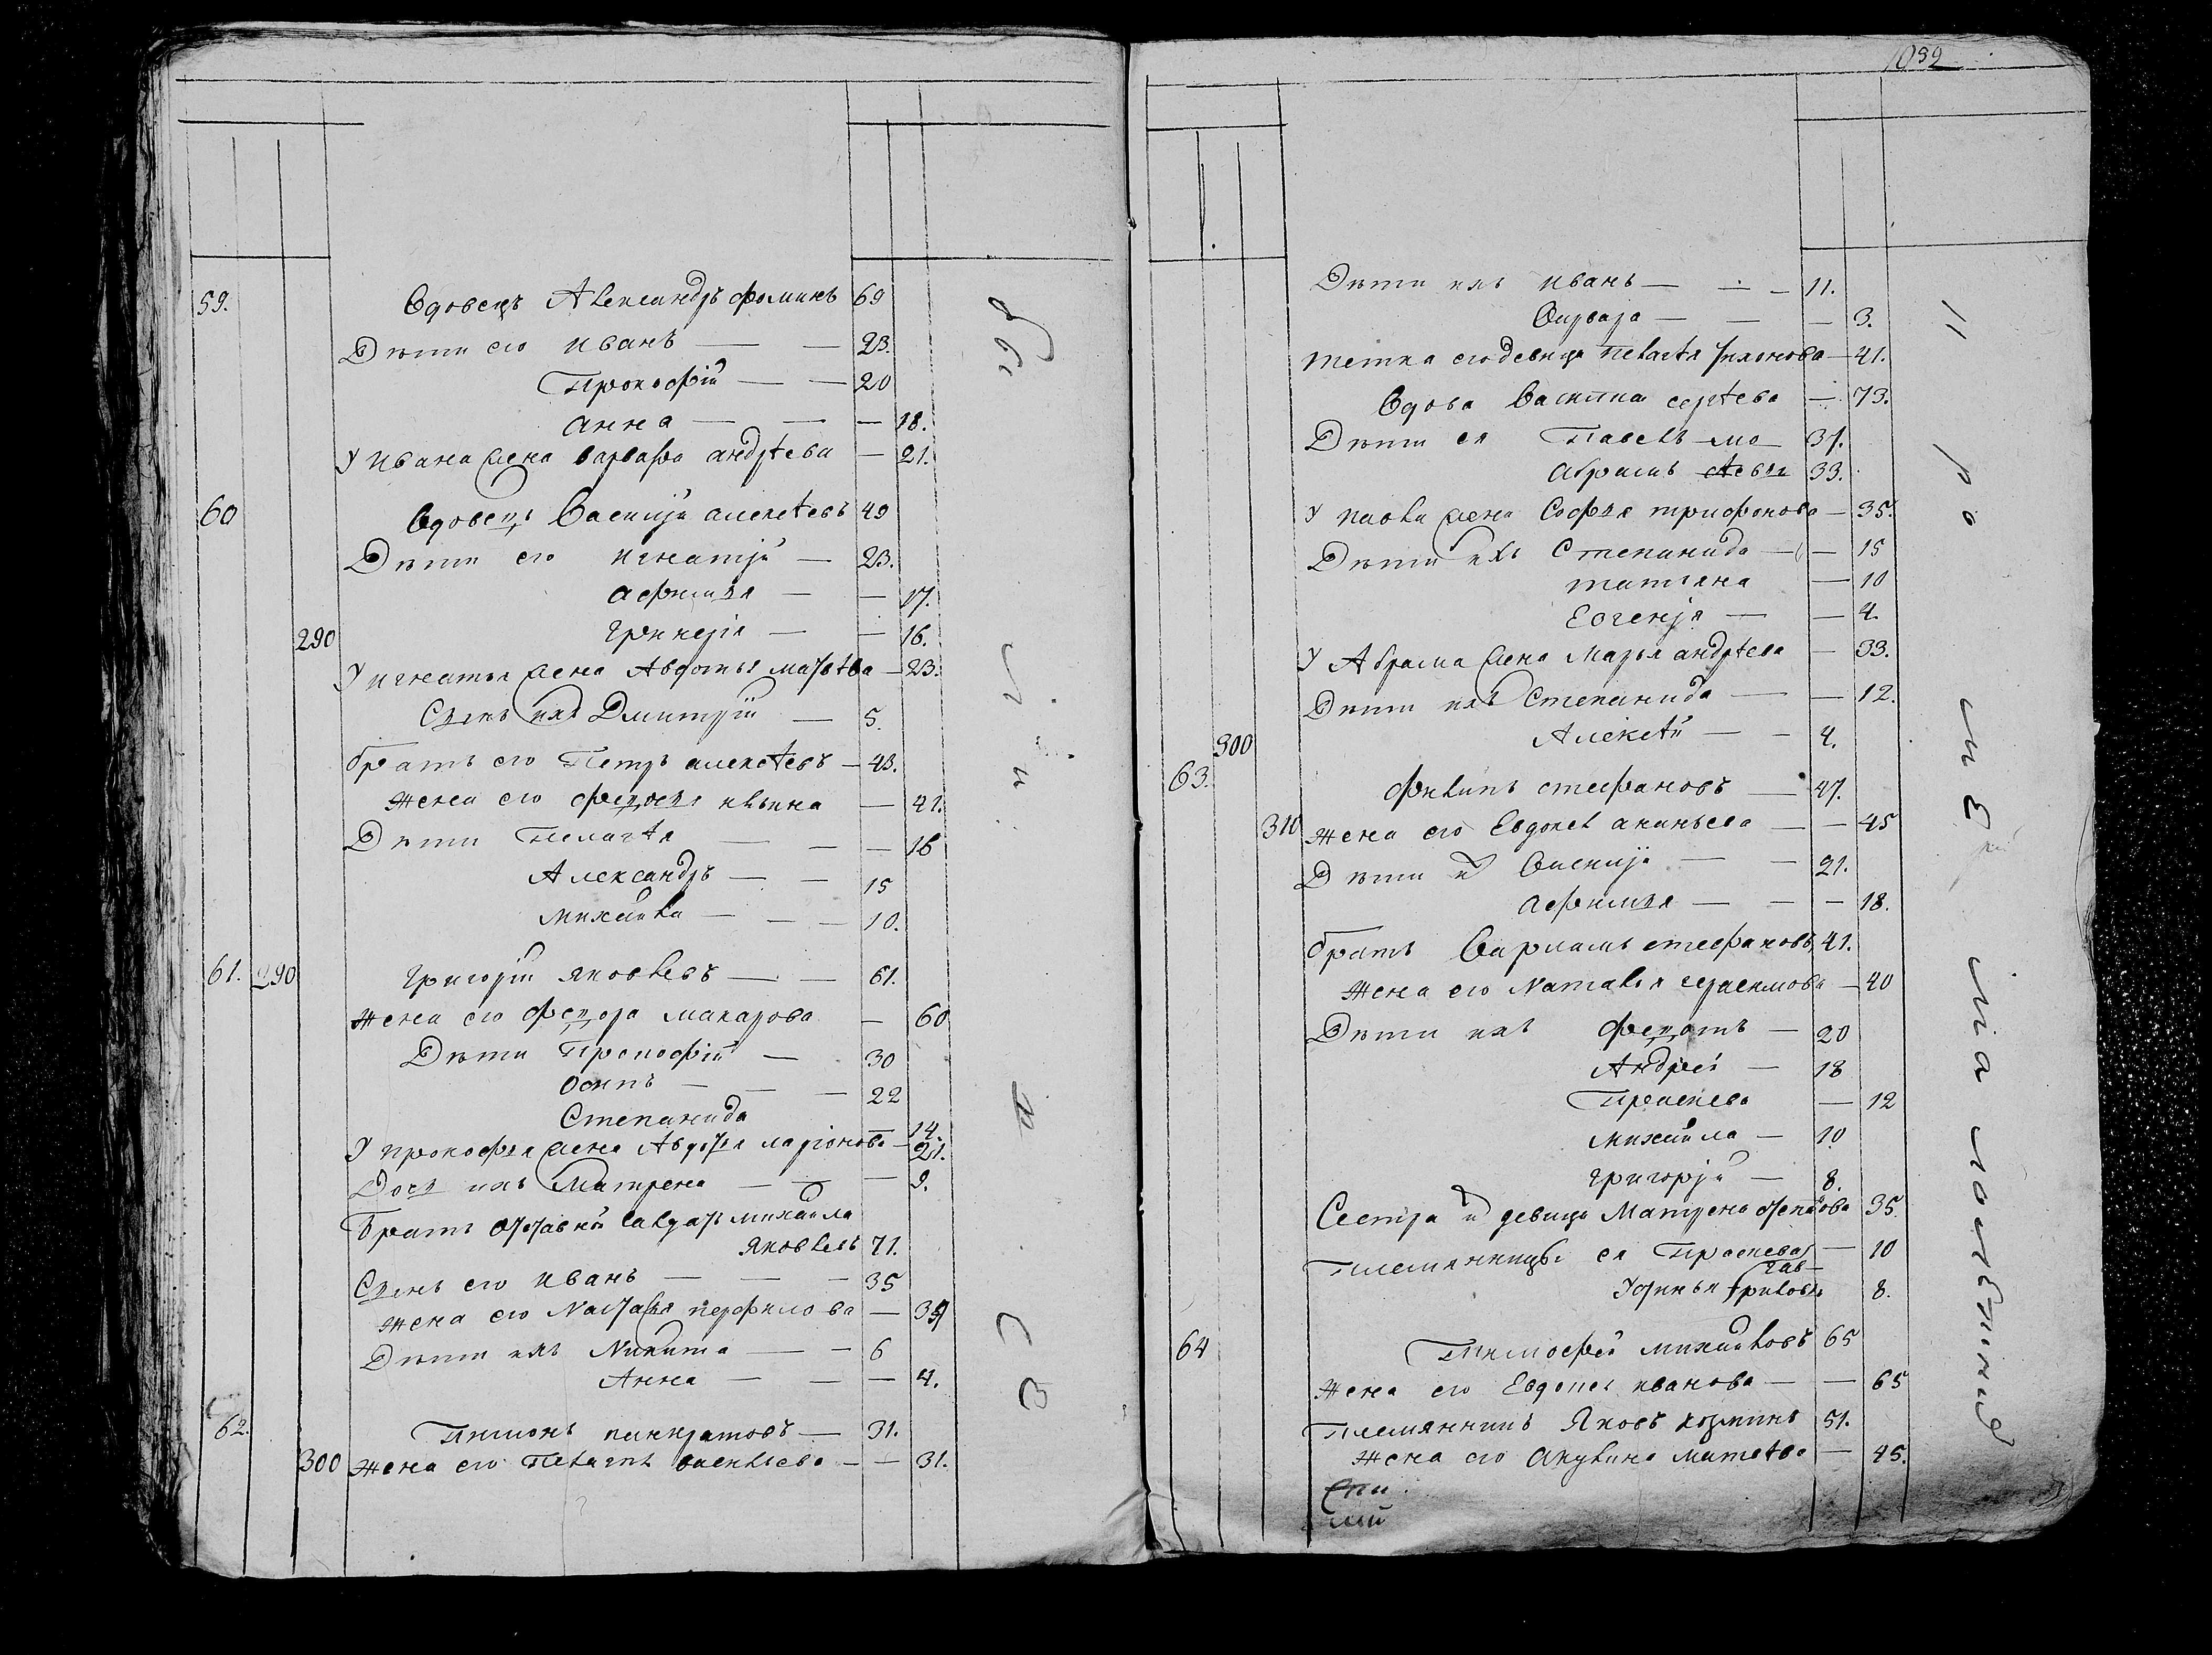 59. Вдовецъ Александръ Фоминъ 69
Дѣти его Иванъ — — 23.
Прокофїй — — 20
Анна — — — 18.
У Ивана жена Варвара Андрѣева — 21.
60 Вдовецъ Василїй Алексѣевъ 49
Дѣти его Игнатїй — 23.
Афимья — — 17.
290 — — 16.
У Игнатья жена Авдотья Матвѣева — 23.
Сынъ ихъ Дмитрїй — 5.
Братъ его Петръ Алексѣевъ — 43.
Жена его Федосья Ильина — 41.
Дѣти Пелагѣя — — — 16
Александръ — — 15
Михайла — — — 10.
61. 290 Григорїй Яковлевъ — — 61.
Жена его Федора Макарова — 60
Дѣти Прокофїй — 30
Осипъ — — — 22
Степанида — 14.
У Прокофья жена Авдотья Ларїонова — 21.
Дочь ихъ Матрена — — — 9.
Братъ отставной салдатъ Михайла
Яковлевъ 71.
Сынъ его Иванъ — — — 35
Жена его Настасья Перфилова — 34
Дѣти ихъ Никита — — 6
Анна — — — 4.
62. Пимонъ Панкратовъ — 31.
300 Жена его Пелагея Васильева — — 31.
1039
Дѣти ихъ Иванъ — — — 11.
Варвара — — — 3.
Тетка его девица Пелагѣя Тихонова — 41.
Вдова Василиса Сергѣева — 73.
Дѣти ея Павелъ — 37.
Абрамъ 33.
У Павла жена Софья Трифонова — 35.
Дѣти ихъ Степанида — — 15
Татьяна — 10
Евгенїя — — 4.
У Абрама жена Марья Андрѣева — 33.
Дѣти ихъ Степанида — — 12.
300 Алексѣй — — 4.
63. Филипъ Стефановъ — 47.
310 Жена его Евдокея Ананьева — — 45
Дѣти их Василїй — — 21.
Афимья — — — 18.
Братъ Варламъ Стефановъ 41.
Жена его Наталья Герасимова — 40
Дѣти ихъ Федотъ — 20
Андрей — 18
Прасковья — 12
Михайла — 10
Григорїй — 8.
Сестра их девица Матрена Степанова 35.
Племянницы ея Прасковья — 10
Устинья 8.
64 Тимофей Михайловъ 65
Жена его Евдокея Иванова — — 65
Племянникъ Яковъ Козминъ 51.
Жена его Акулина Матвѣева — 45.